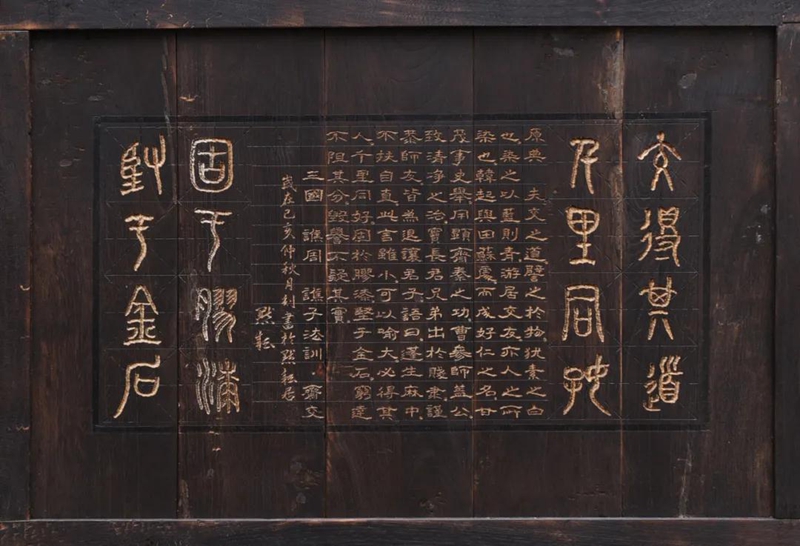 交得其道
千里同好
原典 夫交之道譬之於物猶素之白
也染之以藍則青游居交友亦人之所
染也韓起與田蘇處而成好仁之名甘
茂事史舉用顯齊秦之功曹參師蓋公
致清淨之治竇長君兄弟出於賤隸謹
恭師友皆為退讓君子語曰蓬生麻中
不扶自直此言雖小可以喻大必得其
人千里同好固於膠漆堅于金石窮達
不阻其分毀譽不疑其實
三國 譙周 譙子法訓·齊交
歲在己亥仲秋月刻書於默耘居
默耘
固于膠漆
堅于金石